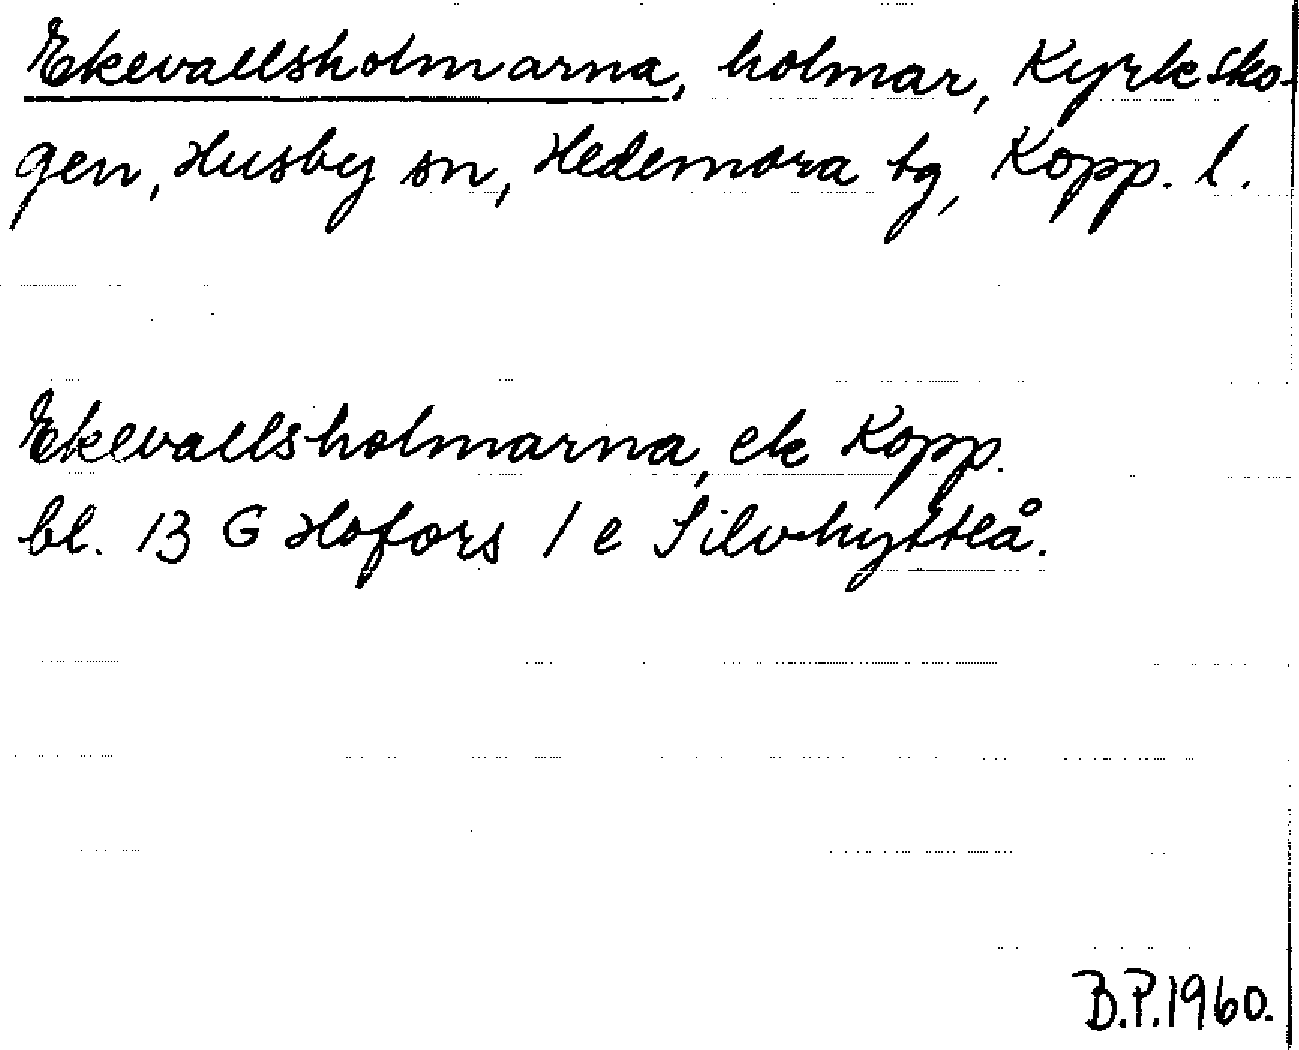 Ekevallsholmarna, holmar, Kyrksko-
gen, Husby sn, Hedemora tg, Kopp. l.
Ekevallsholmarna, ek Kopp.
bl. 13 G Hofors / e Silvhytteå.
B.P. 1960.